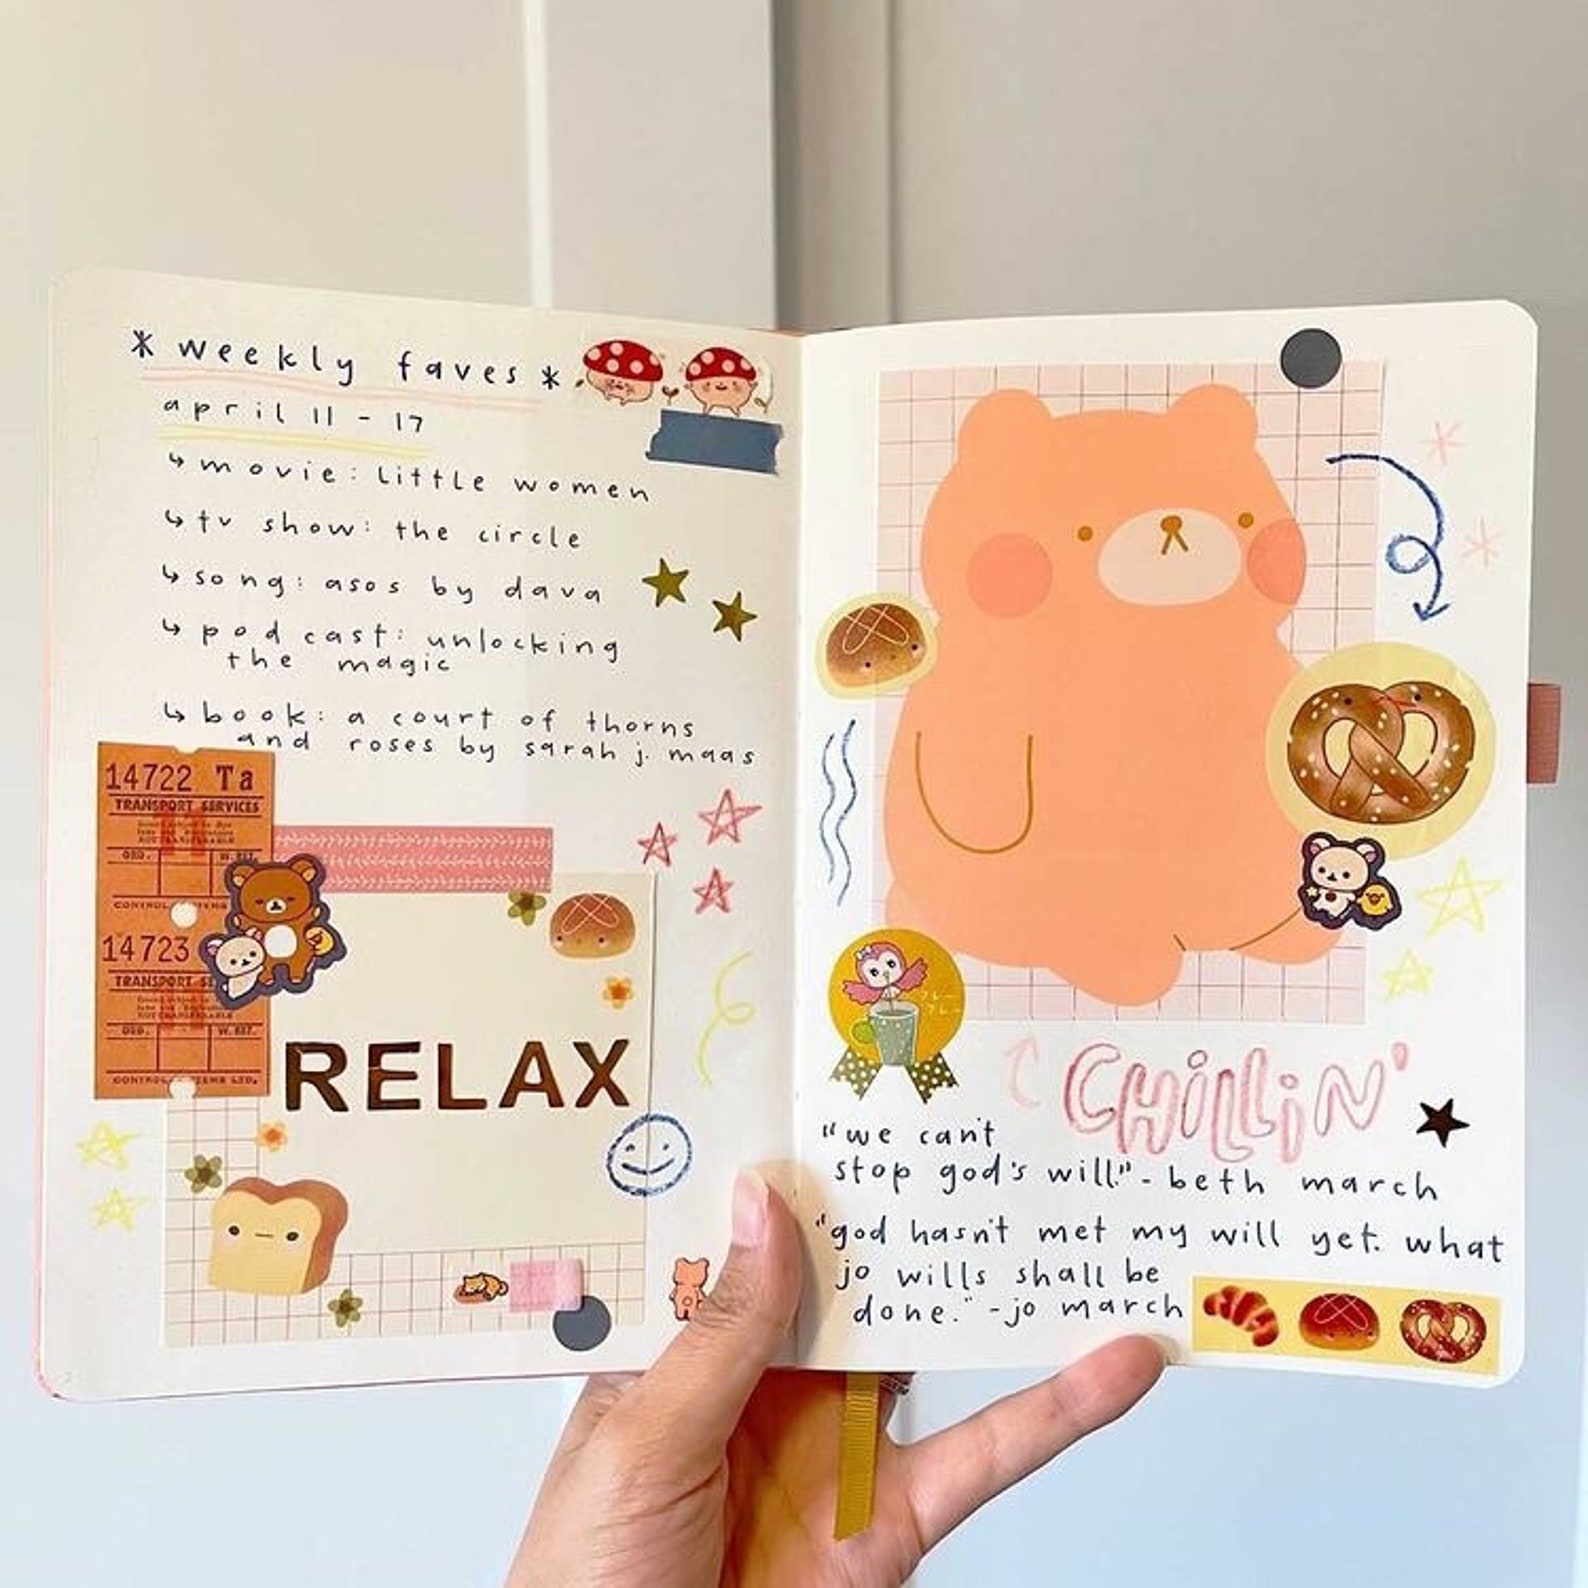 * weekly faves *
april 11 - 17
↳ movie: little women
↳ tv show: the circle
↳ song: asos by dava
↳ podcast: unlocking
the magic
↳ book: a court of thorns
and roses by sarah j. maas
14722 Ta
TRANSPORT SERVICES
ORD.
CONTROL
14723
TRANSPORT
ORD. W. RET.
CONTROL SYSTEMS LTD.
RELAX
CHILLIN'
"we can't
stop god's will." - beth march
"god hasn't met my will yet. what
jo wills shall be
done." - jo march